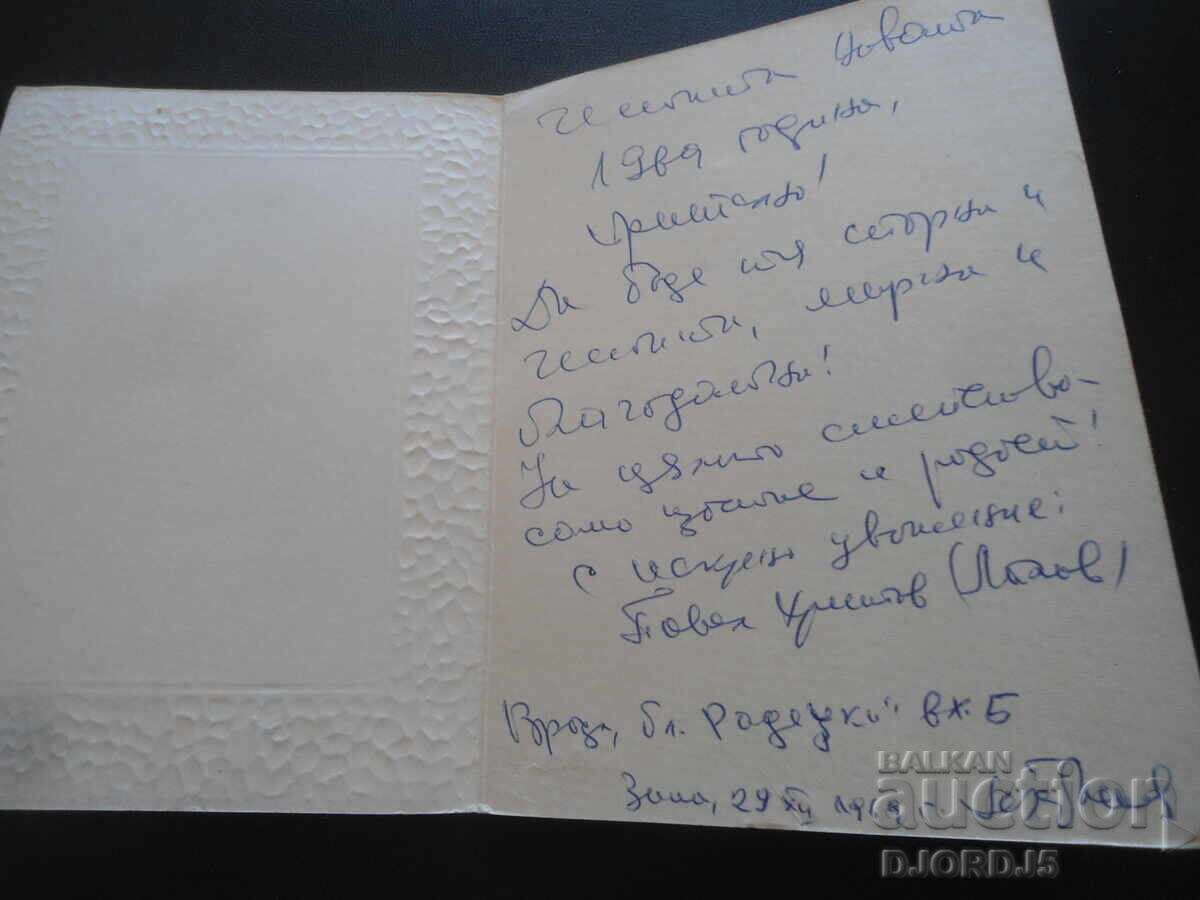 Честита новата
година,
приятелю!
Да бъде тя сторна и
честита, мирна и
благодатна!
На цялото семейство
само щастие и радост!
с искрено уважение:
Павел Христов
Враца, бл. Радецки" вх. Б
29 XII
BALKAN
auction
DJORDJ5